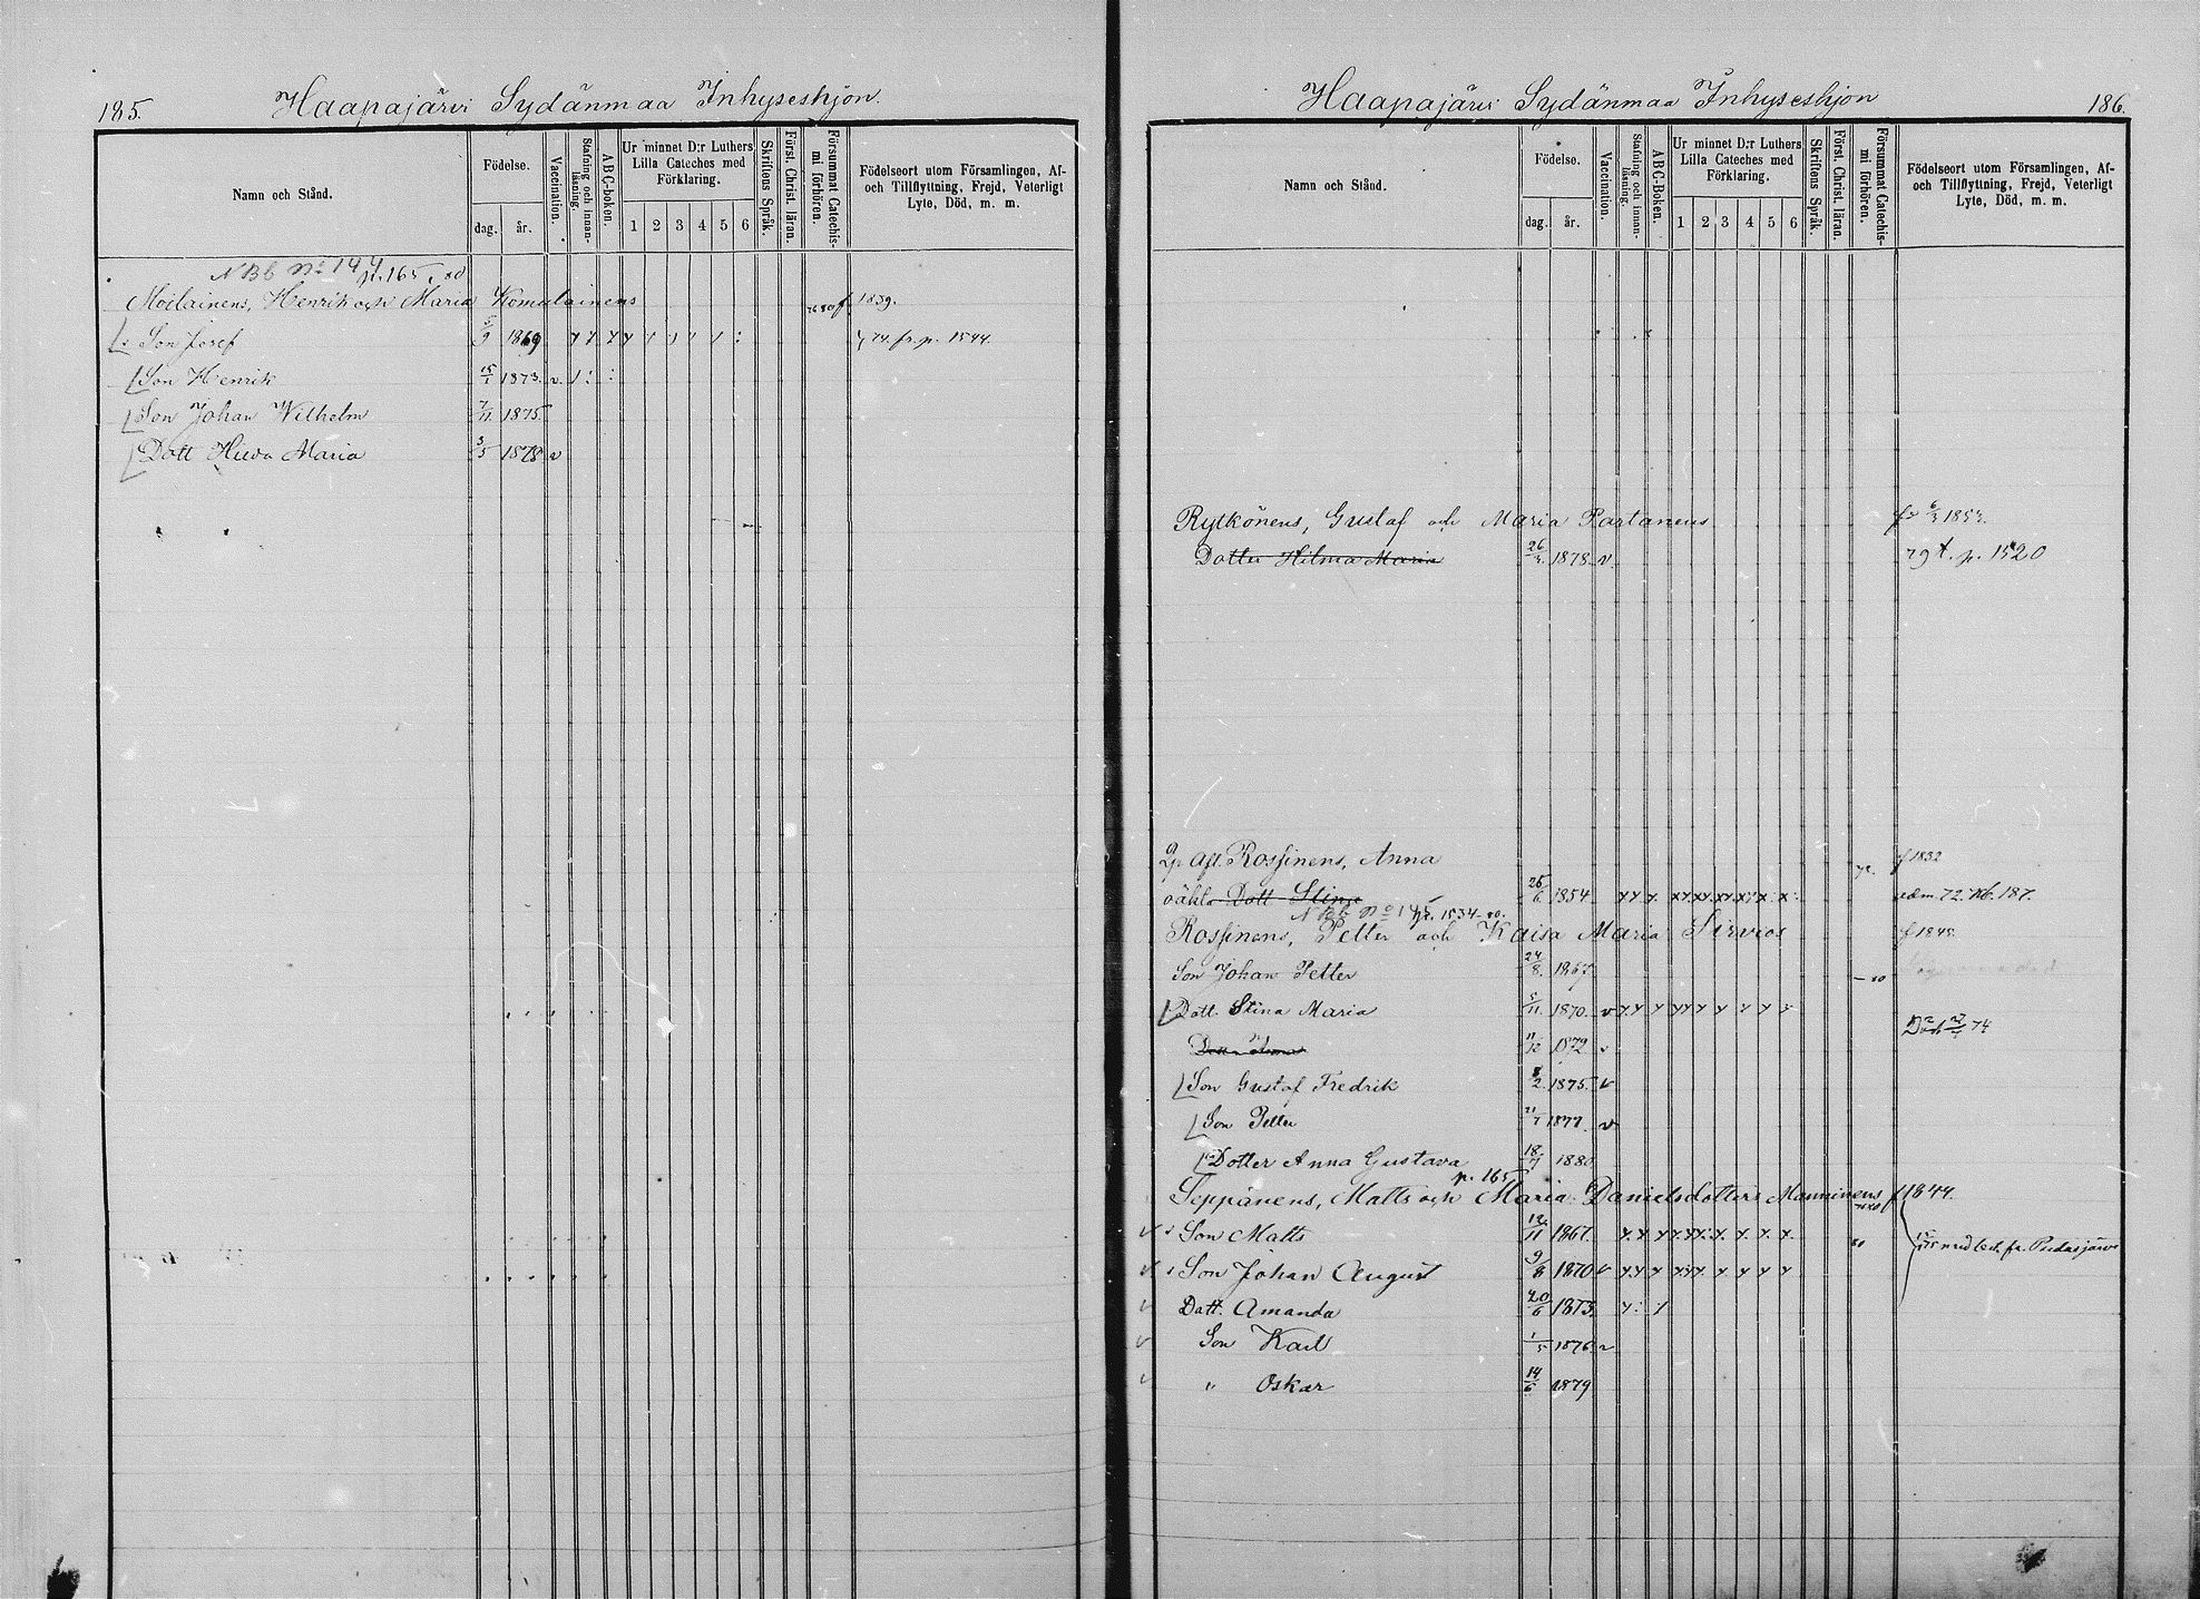 185.
Haapajärvi Sydänmaa Inhyseshjon.
Namn och Stånd.
Födelse.
dag. år.
Vaccination.
Stafning och innanläsning.
ABC-boken.
Ur minnet D:r Luthers Lilla Cateches med Förklaring.
1 2 3 4 5 6
Skriftens Språk.
Först. Christ. läran.
Försummat Catechismi förhören.
Födelseort utom Församlingen, Af- och Tillflyttning, Frejd, Veterligt Lyte, Död, m. m.
NBb No 144 p. 165, 80
Moilainens, Henrik och Maria Komulainens 1839.
Son Josef 5/9 1869 74. fr. p. 1544.
Son Henrik 15/1 1873. v.
Son Johan Wilhelm 7/11 1875.
Dott Hilda Maria 3/5 1878 v
Haapajärvi Sydänmaa Inhyseshjon
186.
Namn och Stånd.
Födelse.
dag. år.
Vaccination.
Stafning och innanläsning.
ABC-Boken.
Ur minnet D:r Luthers Lilla Cateches med Förklaring.
1 2 3 4 5 6
Skriftens Språk.
Först. Christ. läran.
Försummat Catechismi förhören.
Födelseort utom Församlingen, Af- och Tillflyttning, Frejd, Veterligt Lyte, Död, m. m.
Rytkönens, Gustaf och Maria Partanens 6/3 1853.
Dotter Hilma Maria 26/3 1878. v. 79 t. p. 1520
Rossinens, Anna f 1832
oäkta Dott Stina 25/6 1854 72. Nb. 187.
NBb No 145 p. 1534-80.
Rossinens, Petter och Kaisa Maria Sirviös f 1848
Son Johan Petter 24/8. 1867
Dott. Stina Maria 5/11. 1870. v
11/12 1872 v 74
Son Gustaf Fredrik 8/2. 1875. v
Son Petter 21/7 1877. v
Dotter Anna Gustava 18/7 1880
p. 165
Seppänens, Matts och Maria Danielsdotters Manninens f 1844.
Son Matts 12/11 1867. 80 med bet. fr. Pudasjärvi
Son Johan August 9/8 1870 v
Dott. Amanda 20/6 1873.
Son Karl 1/5 1876. v
" Oskar 14/6 1879